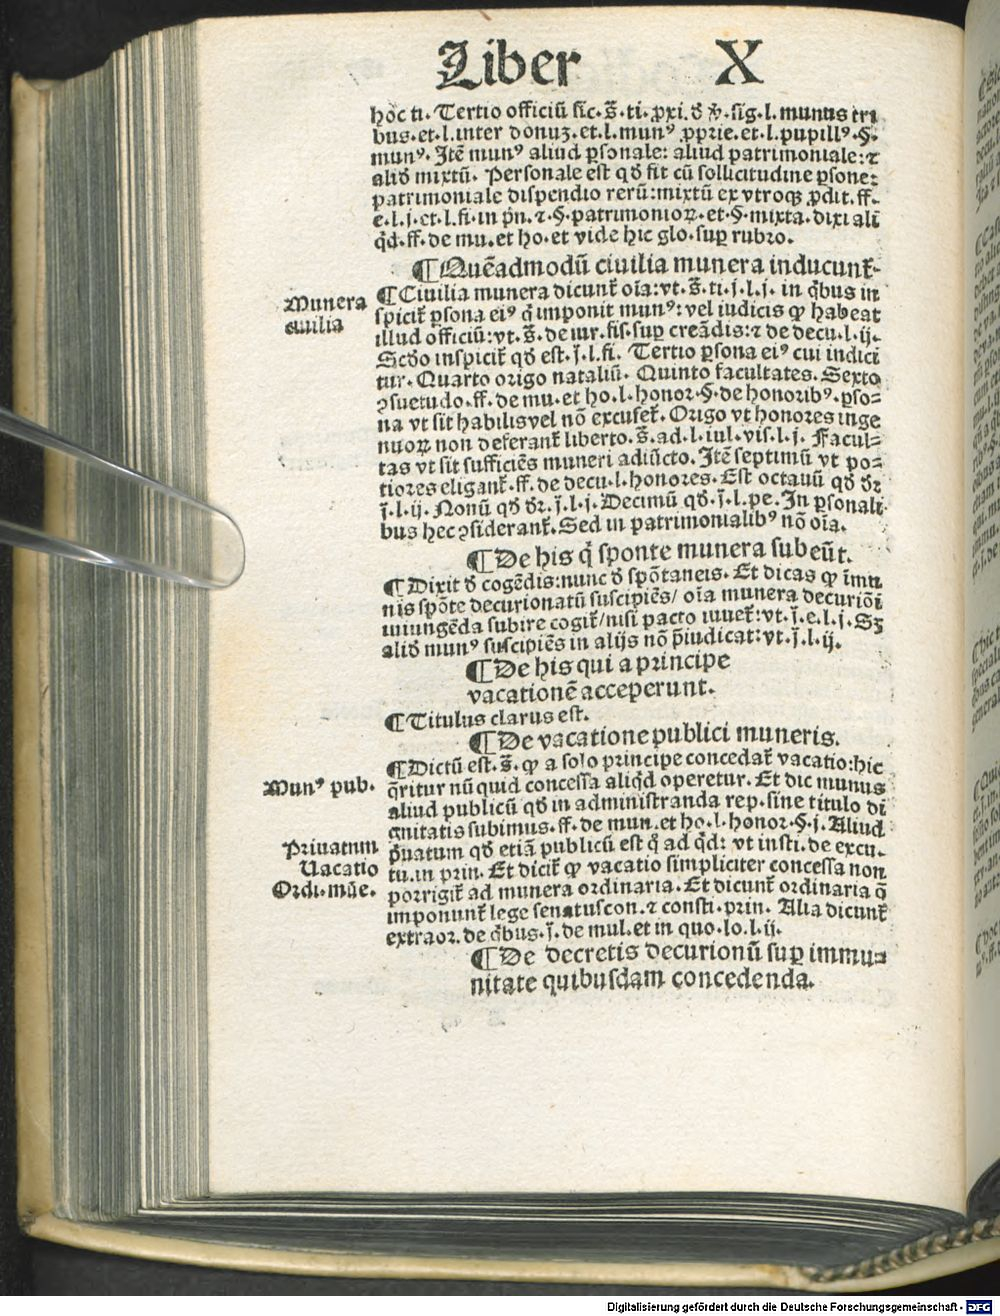 Liber X
hoc ti. Tertio officiū sic. s̄. ti. ꝓxi. ð ꝟ. sig. l. munus tri
bus. et. l. inter donuꝫ. et. l. munꝰ ꝓprie. et. l. pupillꝰ. §.
munꝰ. Itē munꝰ aliud ꝑsonale: aliud patrimoniale: ⁊
alið mixtū. Personale est qð fit cū sollicitudine ꝑsone:
patrimoniale dispendio rerū: mixtū ex vtroqꝫ ꝓdit. ff.
e. l. j. et. l. fi. in pn̄. ⁊. §. patrimonioꝝ. et. §. mixta. dixi ali
q̇d. ff. de mu. et ho. et vide hic glo. suꝑ rubro.
¶ Quēadmodū ciuilia munera inducunt̄.
Munera
ciuilia
¶ Ciuilia munera dicunt̄ oīa: vt. s̄. ti. j. l. j. in q̇bus in
spicit̄ ꝑsona eiꝰ q̇ imponit munꝰ: vel iudicis ꝙ habeat
illud officiū: vt. s̄. de iur. fis. suꝑ creādis: ⁊ de decu. l. ij.
Scðo inspicit̄ qð est. j̄. l. fi. Tertio ꝑsona eiꝰ cui indici
tur. Quarto origo nataliū. Quinto facultates. Sexto
ꝯsuetudo. ff. de mu. et ho. l. honor. §. de honoribꝰ. ꝑso-
na vt sit habilis vel nō excuset̄. Origo vt honores inge
nuoꝝ non deferant̄ liberto. s̄. ad. l. iul. vis. l. j. Facul-
tas vt sit sufficiēs muneri adiūcto. Itē septimū vt po-
tiores eligant̄. ff. de decu. l. honores. Est octauū qð ðr
j̄. l. ij. Nonū qð ðr. j̄. l. j. Decimū qð. j̄. l. pe. In ꝑsonali
bus hec ꝯsiderant̄. Sed in patrimonialibꝰ nō oīa.
¶ De his q̇ sponte munera subeūt.
¶ Dixit ð cogēdis: nunc ð spōtaneis. Et dicas ꝙ īmu
nis spōte decurionatū suscipiēs/ oīa munera decuriōi
iniungēda subire cogit̄/ nisi pacto iuuet̄: vt. j̄. e. l. j. Sꝫ
alið munꝰ suscipiēs in alijs nō p̄iudicat: vt. j̄. l. ij.
¶ De his qui a principe
vacationē acceperunt.
¶ Titulus clarus est.
¶ De vacatione publici muneris.
Munꝰ pub.
¶ Dictū est. s̄. ꝙ a solo principe concedat̄ vacatio: hic
q̄ritur nūquid concessa aliq̇d operetur. Et dic munus
aliud publicū qð in administranda rep. sine titulo di
gnitatis subimus. ff. de mun. et ho. l. honor. §. j. Aliud
Priuatum
Uacatio
Ordi. mūe.
p̄uatum qð etiā publicū est q̇ ad q̇d: vt insti. de excu.
tu. in prin. Et dicit̄ ꝙ vacatio simpliciter concessa non
porrigit̄ ad munera ordinaria. Et dicunt̄ ordinaria q̄
imponunt̄ lege senatuscon. ⁊ consti. prin. Alia dicunt̄
extraor. de q̇bus. j̄. de mul. et in quo. lo. l. ij.
¶ De decretis decurionū suꝑ immu-
nitate quibusdam concedenda.
Digitalisierung gefördert durch die Deutsche Forschungsgemeinschaft - DFG